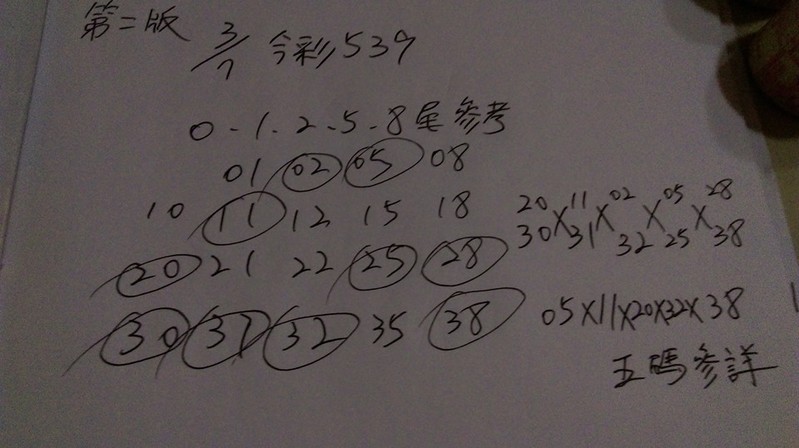 第二版
3/7 今彩539
0-1.2-5-8尾參考
01 02 05 08
10 11 12 15 18
20 21 22 25 28
30 31 32 35 38
20 11 02 05 28
X X X X
30 31 32 25 38
05X11X20X32X38
五碼參詳